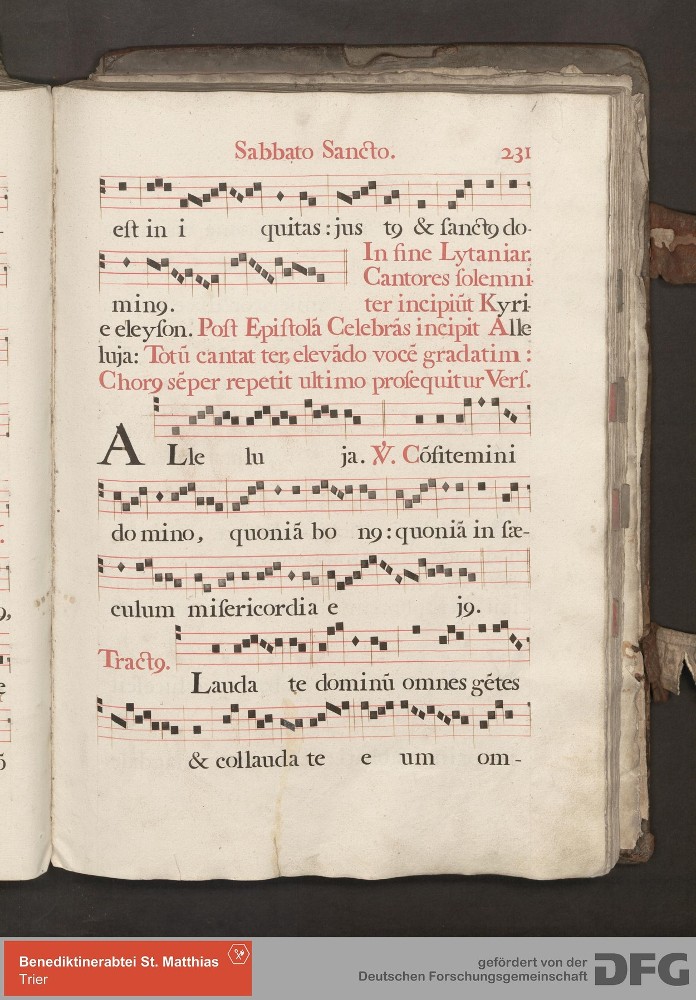 Sabbato Sancto. 231
est in i quitas: jus tꝯ & sanctꝯ do-
minꝯ.
In fine Lytaniar.
Cantores solemni-
ter incipiūt Kyri-
e eleyson. Post Epistolā Celebrās incipit Alle
luja: Totū cantat ter, elevādo vocē gradatim:
Chorꝯ sēper repetit ultimo prosequitur Vers.
A Lle lu ja. ℣. Cōfitemini
domino, quoniā bo nꝯ: quoniā in sæ-
culum misericordia e jꝯ.
Tractꝯ.
Lauda te dominū omnes gētes
& collauda te e um om-
Benediktinerabtei St. Matthias
Trier
gefördert von der
Deutschen Forschungsgemeinschaft
DFG